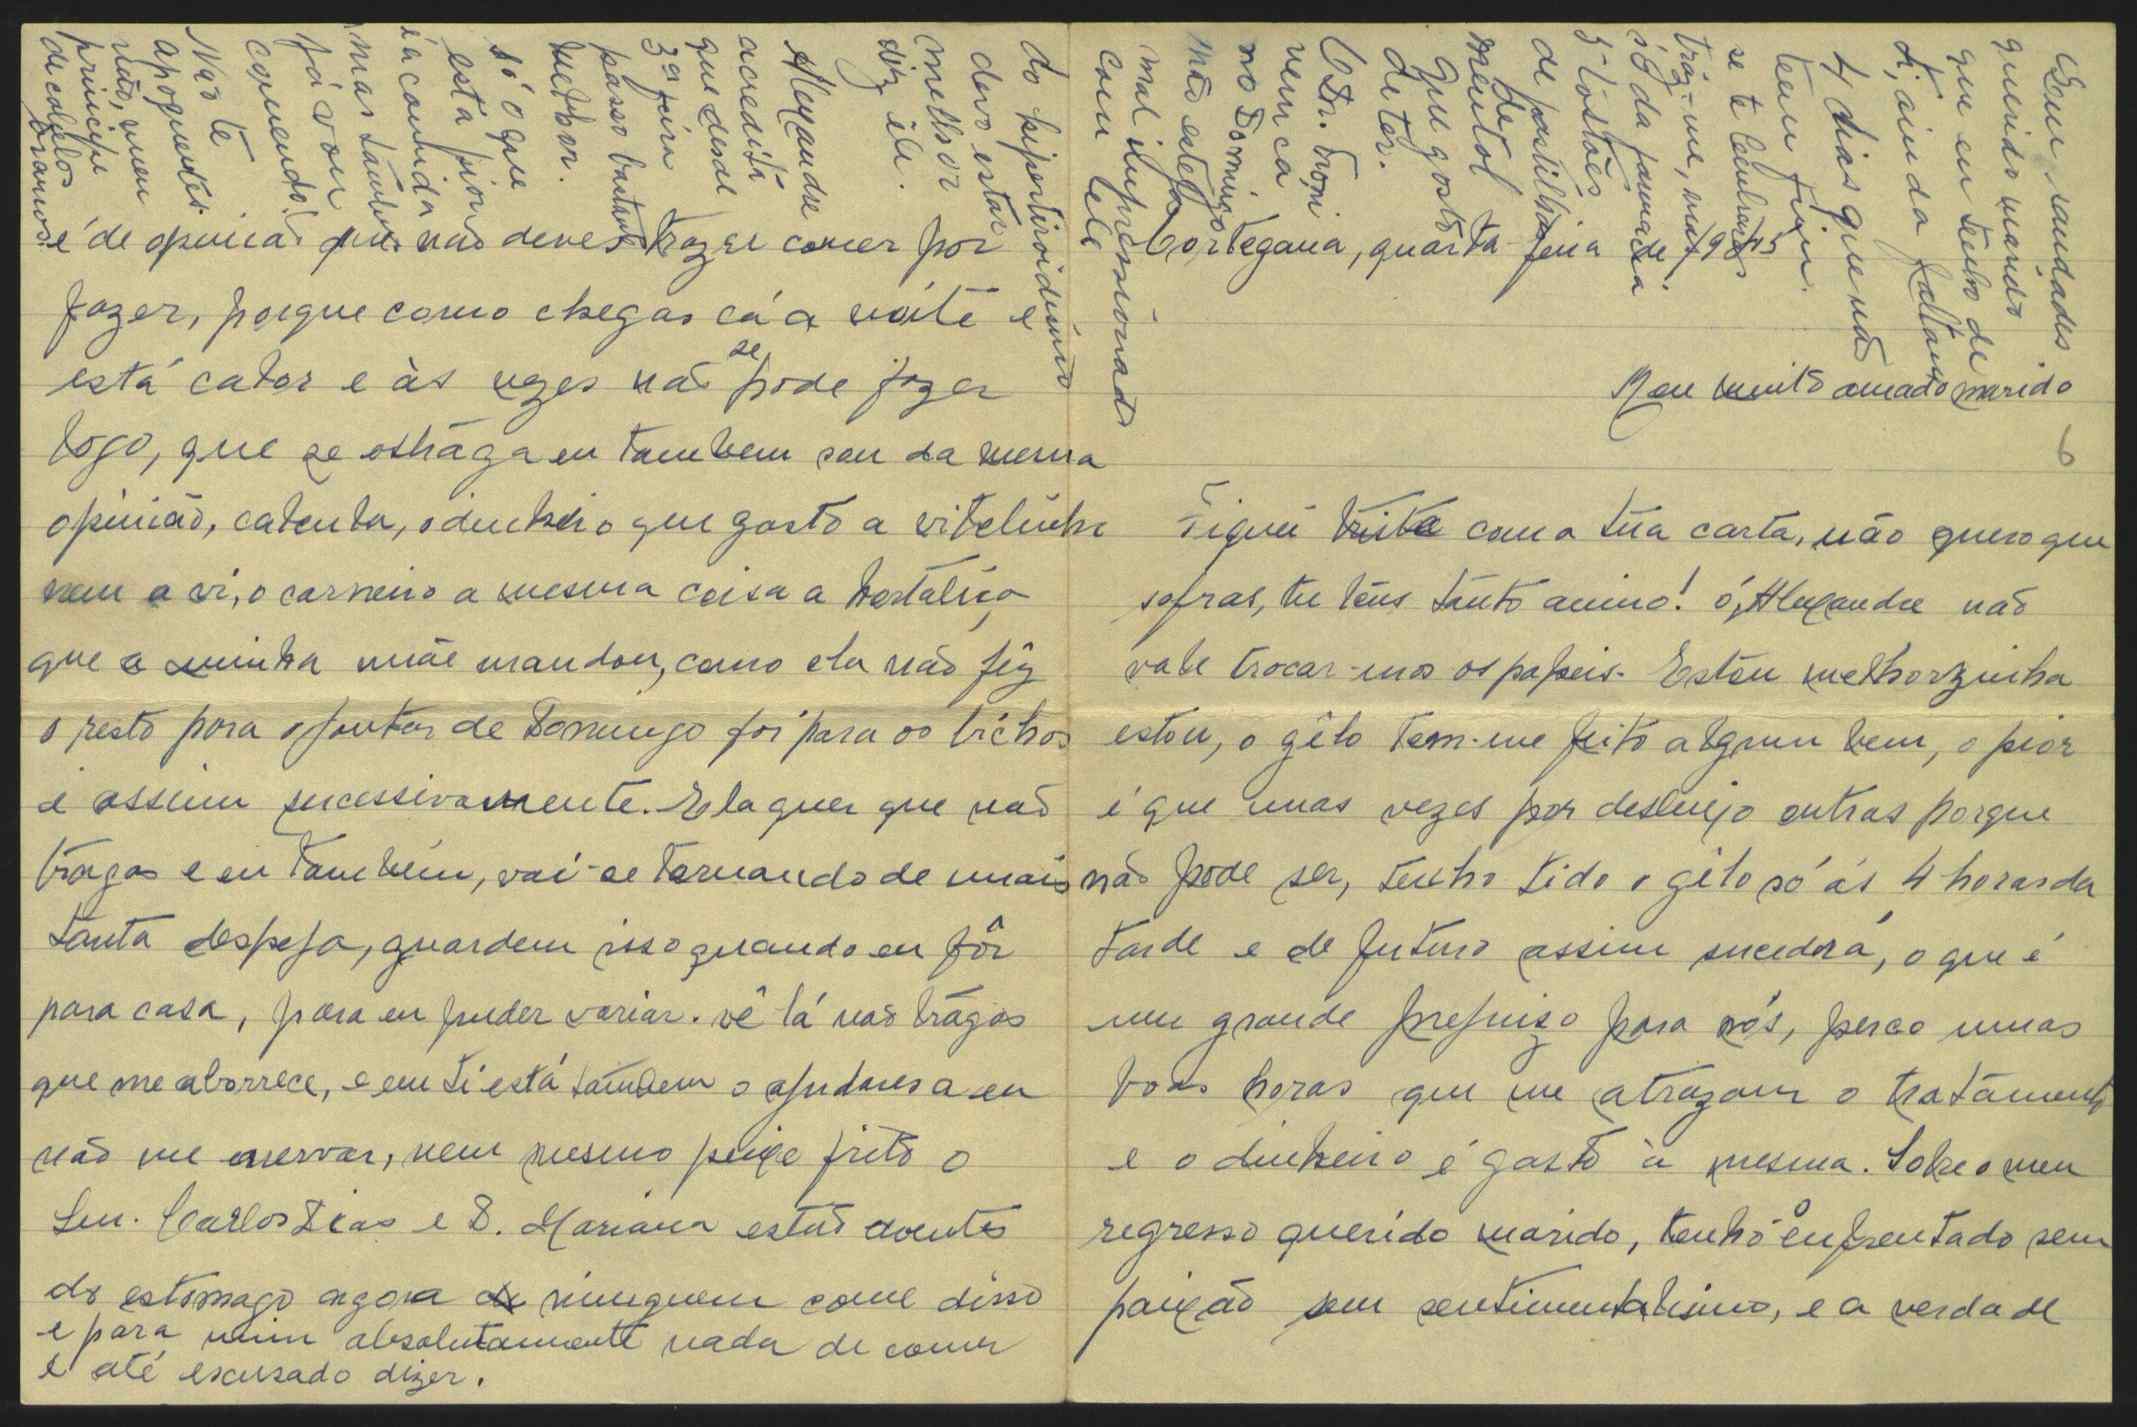 Cortegana, quarta-feira de 1945
Meu muito amado marido
6
Fiquei triste com a tua carta, não quero que
sofras, tu tens tanto animo! ó, Alexandre não
vale trocar-mos os papeis. Estou melhorzinha
estou, o gêlo tem-me feito algum bem, o pior
é que umas vezes por desleijo outras porque
não pode ser, tenho tido o gêlo só ás 4 horas da
tarde e de futuro assim sucederá, o que é
um grande prejuizo para nós, perco umas
boas horas que me atrazam o tratamento
e o dinheiro é gasto à mesma. Sobre o meu
regresso querido marido, tenho-o enfrentado sem
paixão sem sentimentalismo, e a verdade
é de opinião que não deves trazer comer por
fazer, porque como chegas cá á noite e
está calor e às vezes não se pode fazer
logo, que se estraga eu tambem sou da mesma
opinião, calcula, o dinheiro que gasto a vitelinha
nem a vi, o carneiro a mesma coisa a hortaliça
que a minha mãe mandou, como ela não fêz
o resto para o jantar de Domingo foi para os bichos
e assim sucessivamente. Ela quer que não
tragas e eu também, vai-se tornando de mais
tanta despeja, guardem isso quando eu fôr
para casa, para eu puder variar. vê lá não tragas
que me aborrece, e em ti está tambem o ajudares a eu
não me enervar, nem mesmo peixe frito o
Sen. Carlos Dias e D. Mariana estão doentes
do estomago agora ninguem come disso
e para mim absolutamente nada de comer
é até escusado dizer.
do hipertiroidismo
devo estar
melhor
diz êle.
Alexandre
acredita
que desde
3ª feira
passo bastante
melhor.
só o que
está pior
é a comida
mas tambem
já vou
comendo!
Não te
apoquentes
não, meu
principe
de cabelos
brancos.
Com saudades
querido marido
que eu tenho de
ti, ainda faltam
4 dias que não
tem fim.
se te lembrares
traz-me, mas
só da farmacia
5 tostões
de pastilhas
de
mentol
que gosto
de ter.
O Dr. Troni
vem cá
no Domingo
não esteja
mal impressionado
com ele